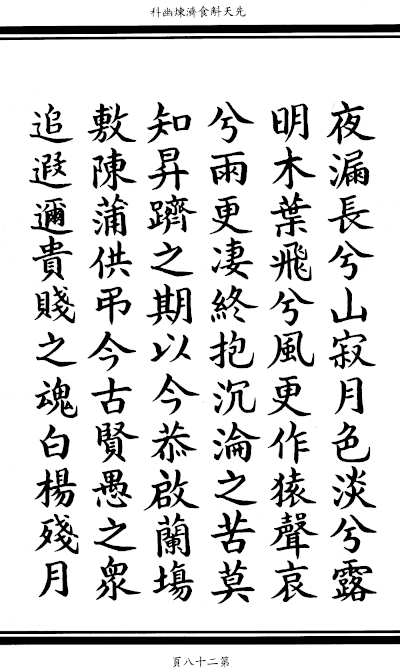 先天斛食濟煉幽科
夜漏長兮山寂月色淡兮露
明木葉飛兮風更作猿聲哀
兮雨更凄終抱沉淪之苦莫
知昇躋之期以今恭啟蘭塲
敷陳蒲供弔今古賢愚之衆
追遐邇貴賤之魂白楊殘月
第二十八頁